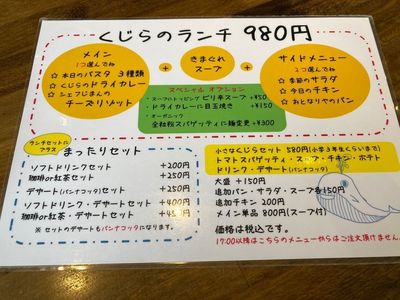 くじらのランチ 980円
メイン
1つ選んでね
☆本日のパスタ 3種類
☆くじらのドライカレー
☆シェフじまんの
チーズリゾット
+
きまぐれ
スープ
+
サイドメニュー
2つ選んでね
☆季節のサラダ
☆今日のチキン
☆おとなりでのパン
スペシャル オプション
・スープのトッピング ピリ辛スープ +¥50
・ドライカレーに目玉焼き +¥150
・オーガニック
全粒粉スパゲッティに麺変更 +¥300
ランチセットに
プラス
まったりセット
ソフトドリンクセット +200円
珈琲or紅茶セット +250円
デザート(パンナコッタ)セット +250円
ソフトドリンク・デザートセット +400円
珈琲or紅茶・デザートセット +450円
※ セットのデザートもパンナコッタになります。
小さなくじらセット 580円(小学3年生くらいまで)
トマトスパゲッティ・スープ・チキン・ポテト
ドリンク・デザート(パンナコッタ)
大盛 +150円
追加パン・サラダ・スープ各150円
追加チキン 200円
メイン単品 800円(スープ付)
価格は税込です。
17:00以降はこちらのメニューからはご注文頂けません。